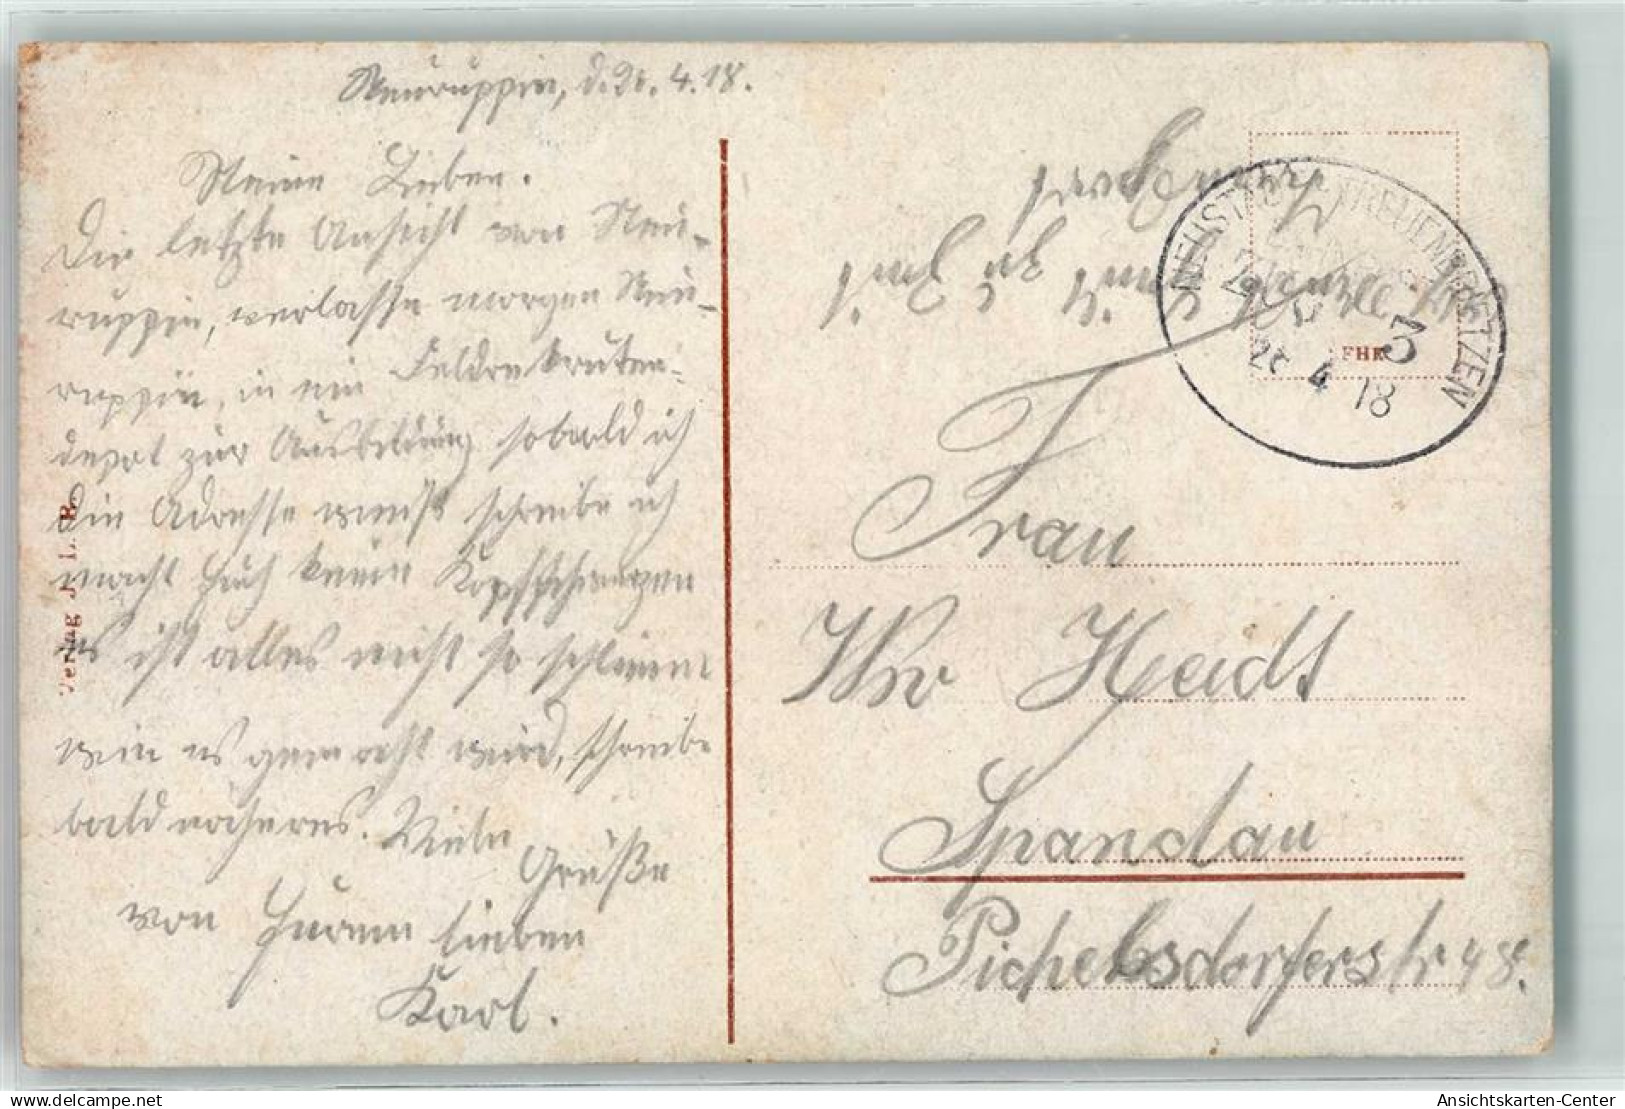 Neuruppin, d. 26. 4. 18.
Meine Lieben.
Die letzte Ansicht von Neu-
ruppin, verlasse morgen Neu-
ruppin, in ein Feldrekruten-
depot zur Ausbildung sobald ich
die Adresse weiß schreibe ich
macht Euch keine Kopfschmerzen
es ist alles nicht so schlimm
wie es gemacht wird, schreibe
bald näheres. Viele
Grüße
von Eurem lieben
Karl.
Verlag J. L. B.
NEUSTADT TREUENBRIETZEN
3
26 4 18
Frau
Ww Heidt
Spandau
Pichelsdorferstr 48.
Ansichtskarten-Center